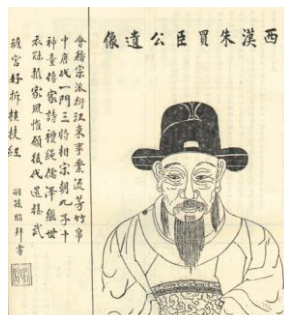 西漢朱買臣公遺像
會稽宗派衍江東事業流芳竹帛
中唐代一門三將相宋朝九子十
神童傳家詩禮綿儒澤繼世
衣冠家風惟願後代還接武
蟾宮好折桂枝紅
嗣孫拜書